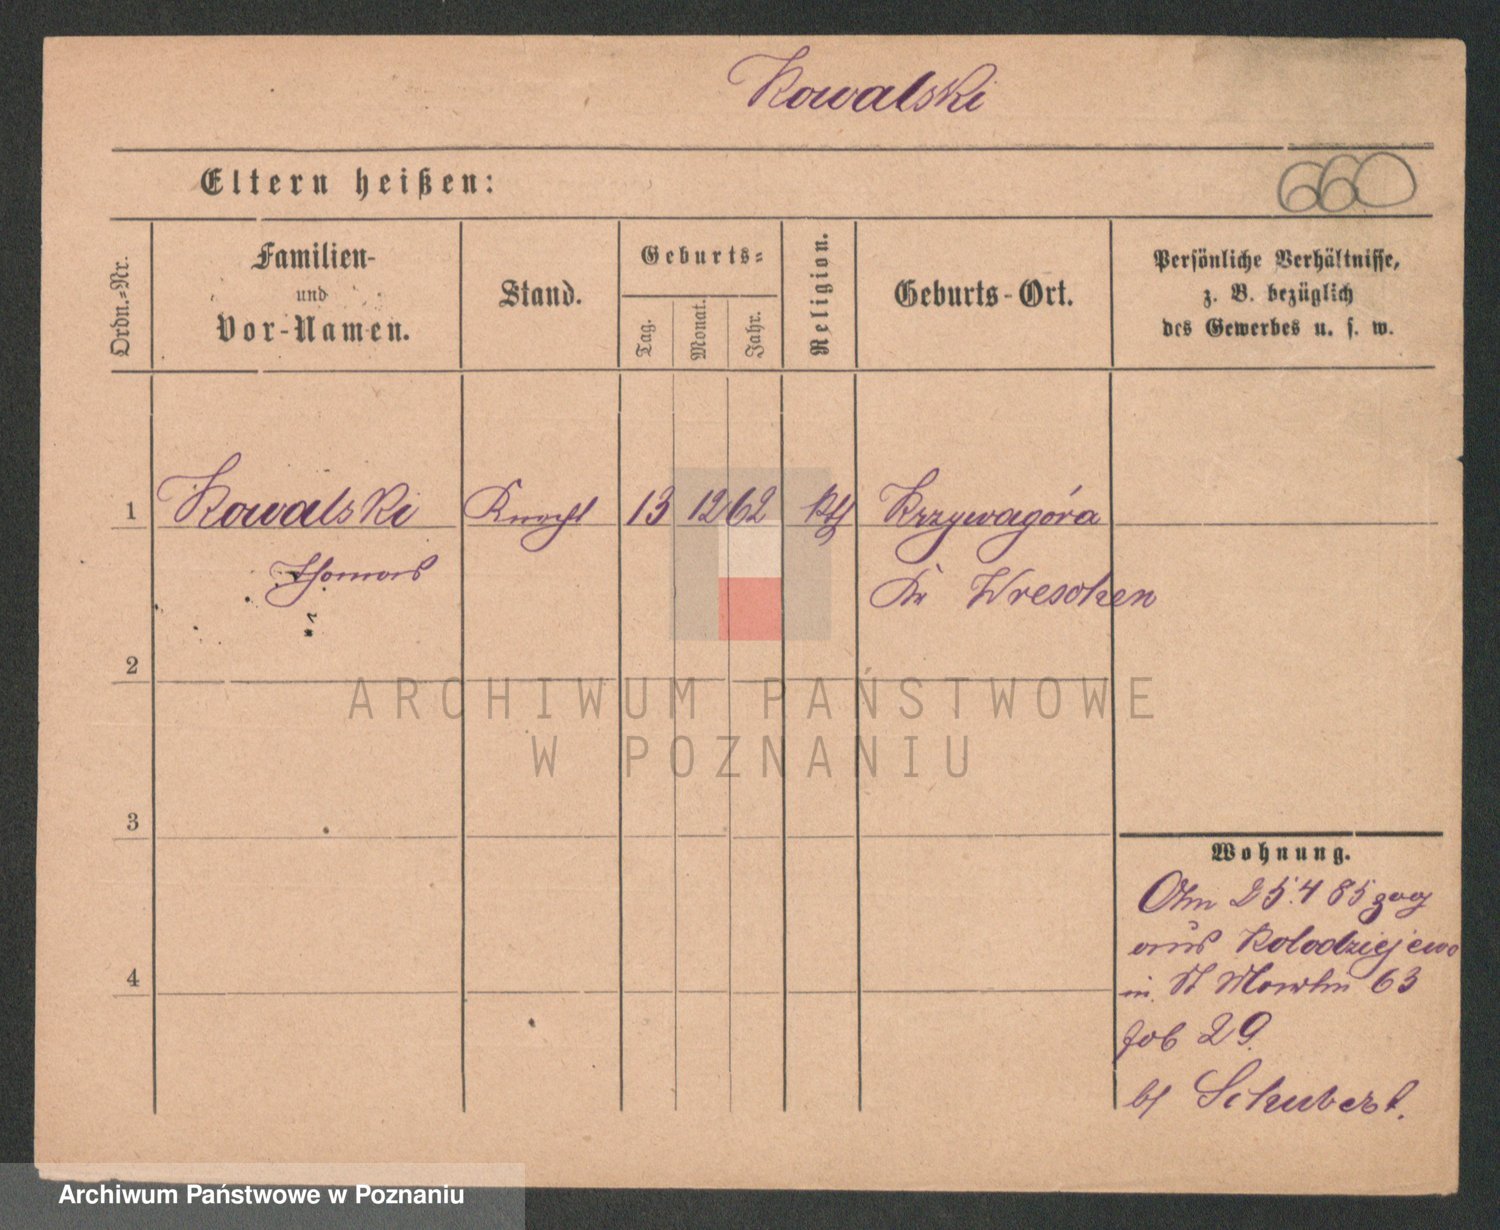 Kowalski
Eltern heißen:
660
Ordn.-Nr.
Familien-
und
Vor-Namen.
Stand.
Geburts-
Tag.
Monat.
Jahr.
Religion.
Geburts-Ort.
Persönliche Verhältnisse,
z. B. bezüglich
des Gewerbes u. s. w.
1 Kowalski Knecht 13 12 62 kth Krzywagóra
Thomas
Kr Wreschen
2
ARCHIWUM PAŃSTWOWE
W POZNANIU
3
Wohnung.
Am 25.4 85 zog
aus Kolodziejewo
4
in St Martin 63
29.
bei Schubert.
Archiwum Państwowe w Poznaniu